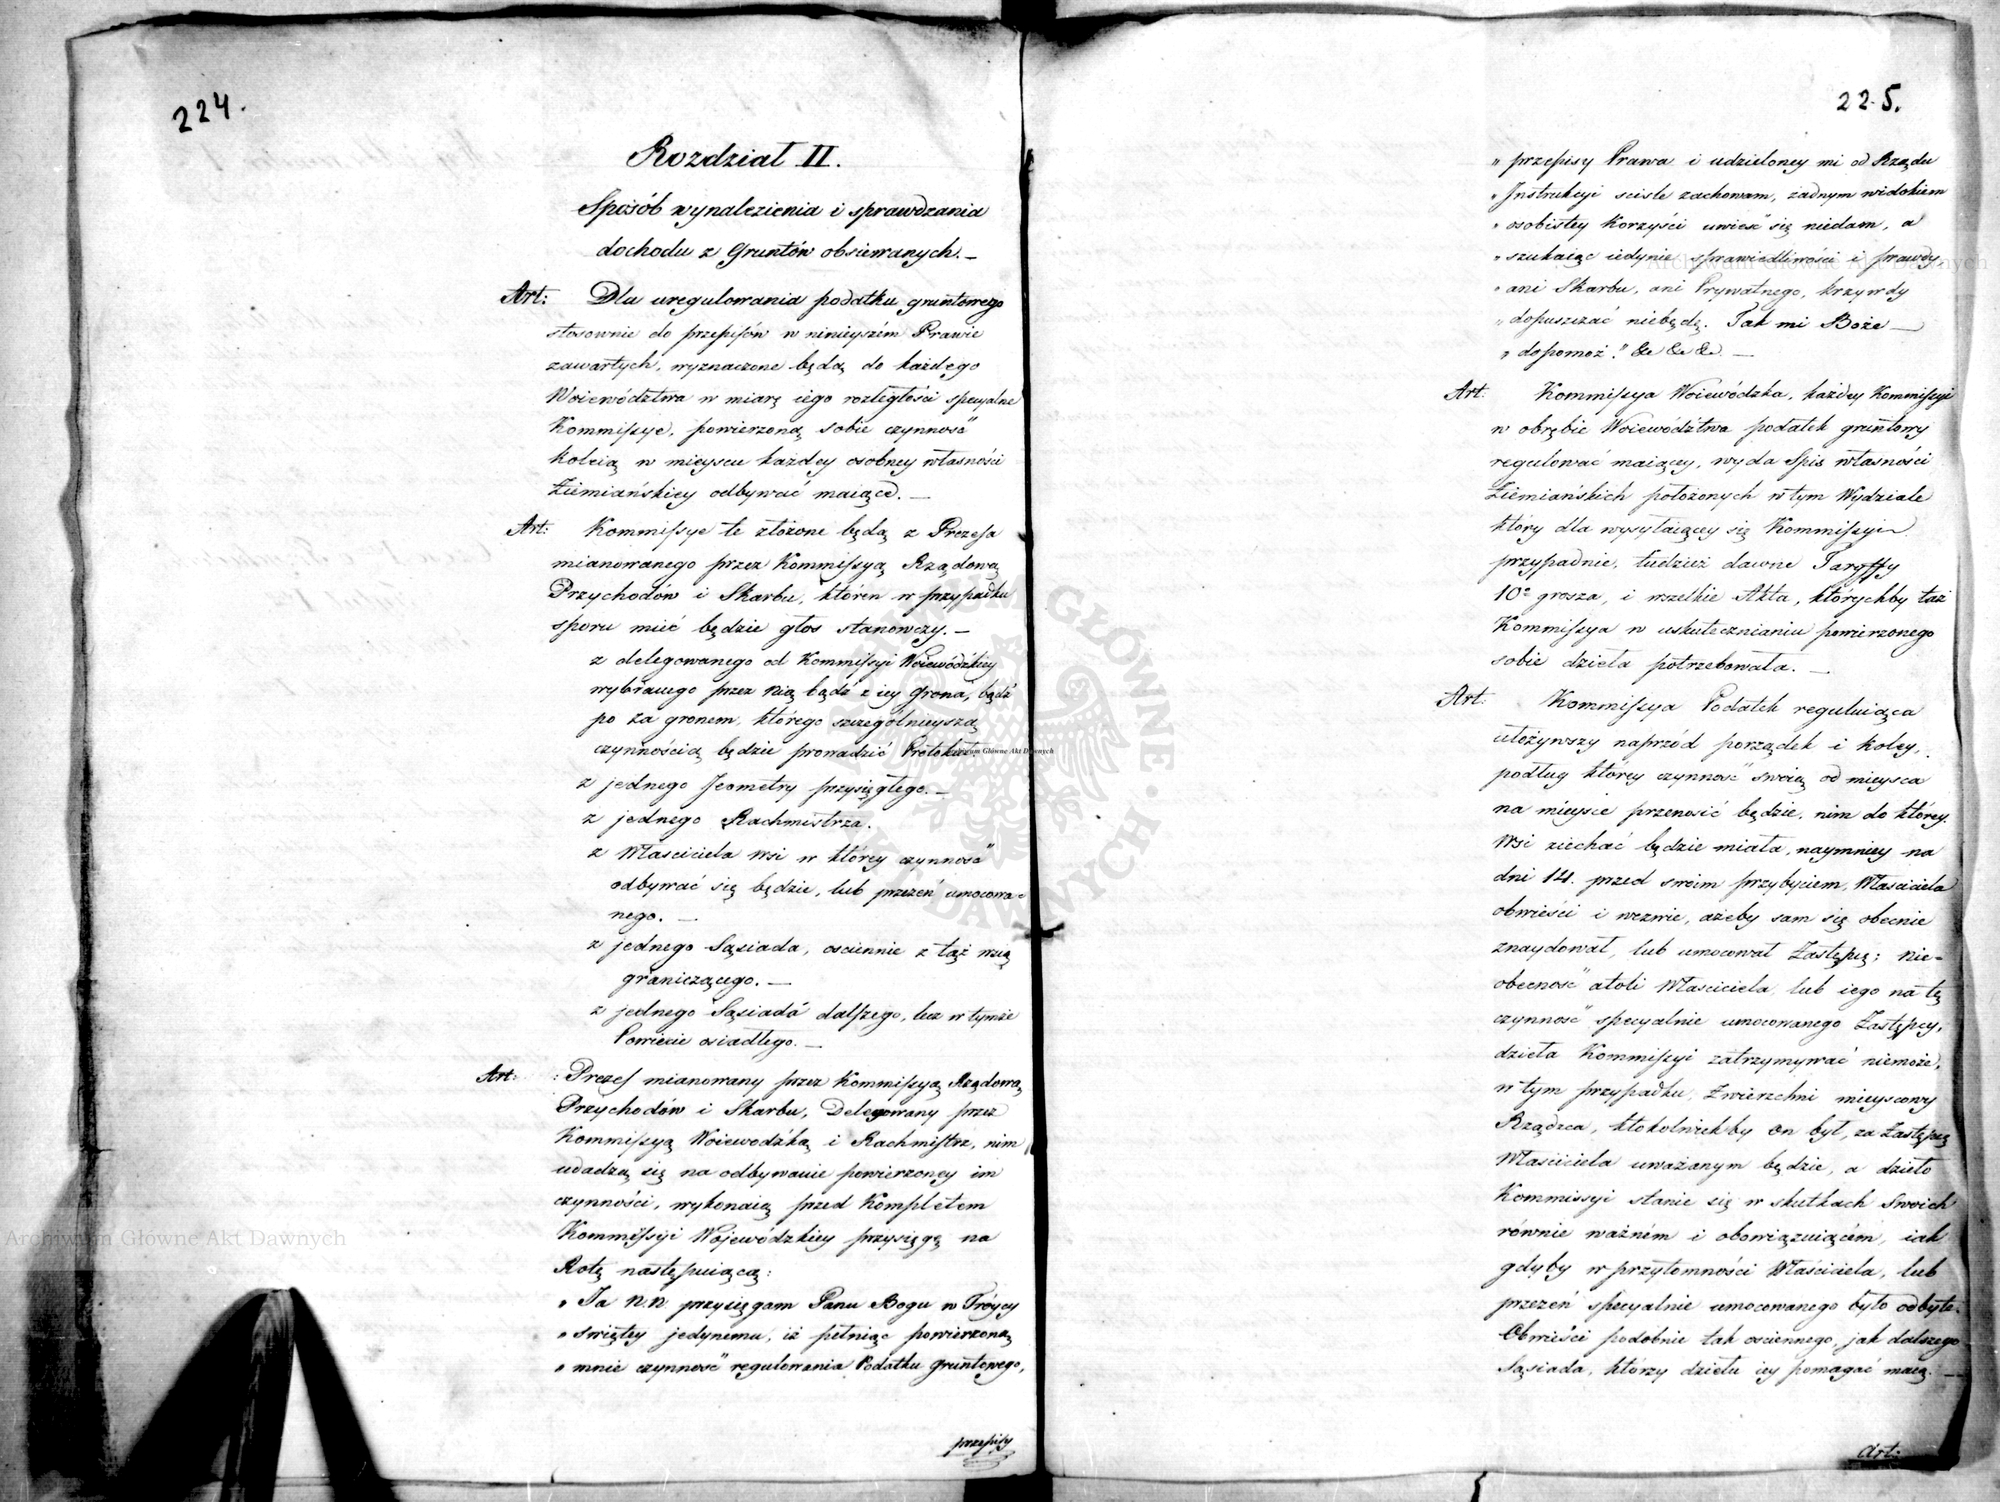 224.
Rozdział II.
Sposób wynalezienia i sprawdzania
dochodu z Gruntów obsiewanych. —
Art: Dla uregulowania podatku gruntowego
stosownie do przepisów w ninieyszém Prawie
zawartych, wyznaczone będą do każdego
Województwa w miarę iego rozległości specyalne
Kommissye, powierzoną sobie czynność
koleią w mieyscu każdey osobney własności
Ziemiańskiey odbywać maiące. —
Art: Kommissye te złożone będą z Prezesa
mianowanego przez Kommissyą Rządową
Przychodów i Skarbu, któren w przypadku
sporu mieć będzie głos stanowczy. —
z delegowanego od Kommissyi Woiewódzkiey
wybranego przez nią bądź z iey grona, bądź
po za gronem, którego szczególnieyszą
czynnością będzie prowadzić Protokuł.
z jednego Jeometry przysięgłego. —
z jednego Rachmistrza.
z Właściciela wsi w którey czynność
odbywać się będzie, lub przezeń umocowa=
nego. —
z jednego Sąsiada,ościennie z tąż wsią
graniczącego. —
z jednego Sąsiada dalszego, lecz w tymże
Powiecie osiadłego. —
Art: Prezes mianowany przez Kommissyą Rządową
Przychodów i Skarbu, Delegowany przez
Kommissyą Woiewodzką i Rachmistrz, nim
udadzą się na odbywanie powierzoney im
czynności, wykonaią przed Kompletem
Kommissyi Wojewódzkiey przysięgę na
Rotę następuiącą:
„ Ja N.N. przysięgam Panu Bogu w Tróycy
„ świętey jedynemu, iż pełniąc powierzoną
„ mnie czynność regulowania Podatku gruntowego,
przepisy
225.
„ przepisy Prawa i udzieloney mi od Rządu
„ Jnstrukcyi sciśle zachowam, żadnym widokiem
„ osobistey Korzyści uwieść się niedam, a
„ szukaiąc iedynie sprawiedliwości i prawdy,
„ ani Skarbu, ani Prywatnego, krzywdy
„ dopuszczać niebędę. Tak mi Boże —
„ dopomoż." &c &c &c. —
Art. Kommissya Woiewódzka, każdey Kommissyi
w obrębie Woiewództwa podatek gruntowy
regulować maiącey, wyda Spis własności
Ziemiańskich położonych w tym Wydziale
który dla wysyłaiącey się Kommissyi
przypadnie, tudzież dawne Taryffy
10º grosza, i wszelkie Akta, którychby taż
Kommissya w uskutecznianiu powierzonego
sobie dzieła potrzebowała. —
Art: Kommissya Podatek reguluiąca
ułożywszy naprzód porządek i koley,
podług którey czynność swoią od mieysca
na mieysce przenosić będzie, nim do którey
Wsi ziechać będzie miała, naymniey na
dni 14. przed swoim przybyciem, Właściciela
obwieści i wezwie, ażeby sam się obecnie
znaydował, lub umocował Zastępcę; Nie=
obecność atoli Właściciela, lub iego na tę
czynność specyalnie umocowanego Zastępcy,
dzieła Kommissyi zatrzymywać niemoże,
w tym przypadku, Zwierzchni mieyscowy
Rządzca, ktokolwiekby on był, za Zastępcę
Właściciela uważanym będzie, a dzieło
Kommissyi stanie się w skutkach swoich
równie ważném i obowiązuiącém, iak
gdyby w przytomności Właściciela, lub
przezeń specyalnie umocowanego było odbyte.
Obwieści podobnie tak ościennego, jak dalszego
Sąsiada, którzy dziełu iey pomagać maią. —
Art:
Archiwum Główne Akt Dawnych
Archiwum Główne Akt Dawnych
Archiwum Główne Akt Dawnych